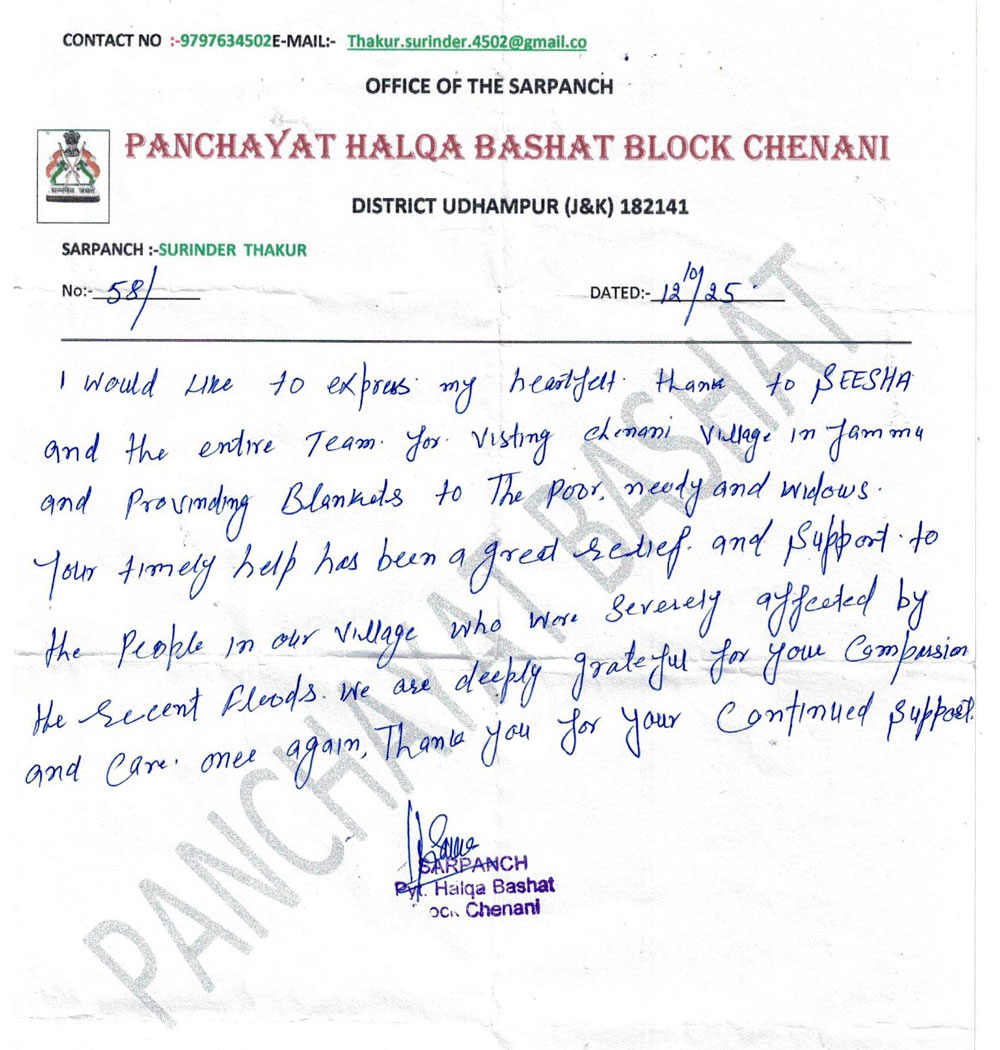 CONTACT NO :-9797634502E-MAIL:- Thakur.surinder.4502@gmail.co
OFFICE OF THE SARPANCH
PANCHAYAT HALQA BASHAT BLOCK CHENANI
सत्यमेव जयते
DISTRICT UDHAMPUR (J&K) 182141
SARPANCH :-SURINDER THAKUR
No:- 58/
DATED:- 12/10/25
I would Like to express my heartfelt thank to SEESHA
and the entire Team for Visting Chenani Village in Jammu
and Provinding Blankets to The Poor, needy and widows.
Your timely help has been a great relief and support to
the People in our village who were severely affected by
the recent floods. We are deeply grateful for your Compession
and Care. once again, Thank you for your Continued support.
SARPANCH
Pyt. Halqa Bashat
ock Chenani
PANCHAYAT BASHAT